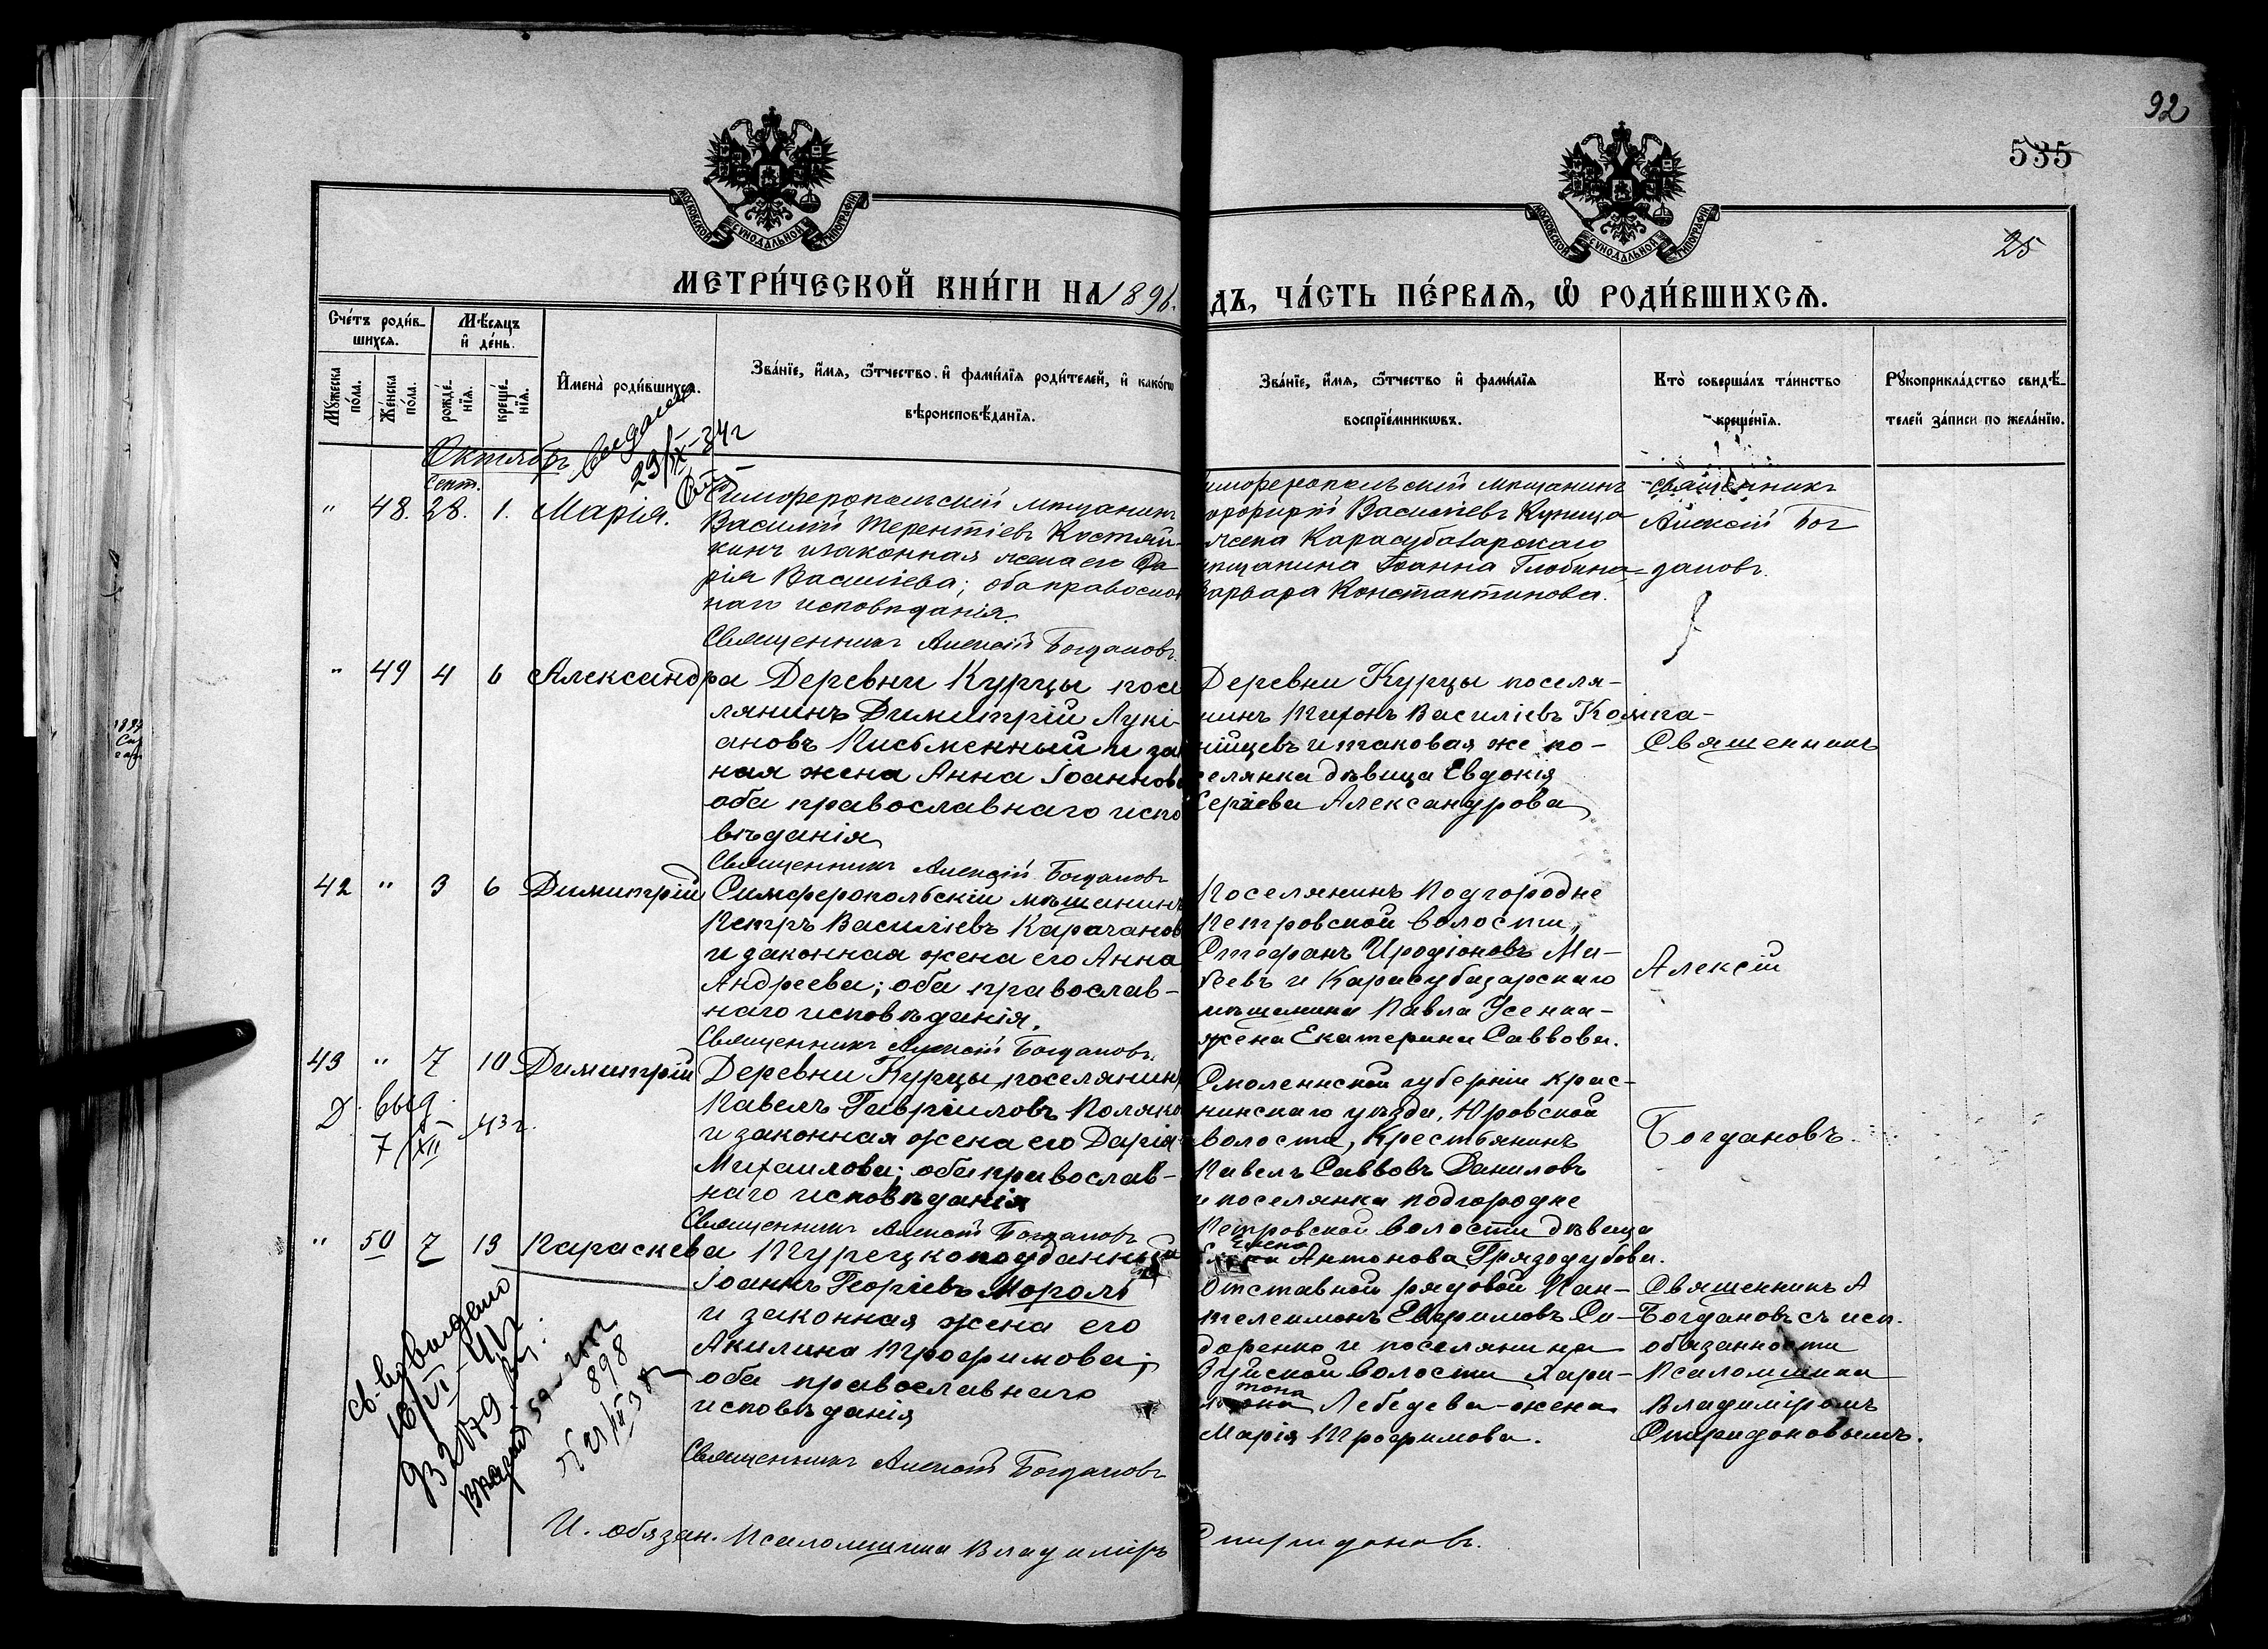 92
535
25
МОСКОВСКОЙ СѴНОДАЛЬНОЙ ТИПОГРАФІИ
МОСКОВСКОЙ СѴНОДАЛЬНОЙ ТИПОГРАФІИ
МЕТРИ́ЧЕСКОЙ КНИ́ГИ НА 1896.
ДЪ, ЧА́СТЬ ПЕ́РВАѦ, Ѡ РОДИ́ВШИХСѦ.
Сче́тъ роди́в-
шихсѧ.
Мѣ́сѧцъ
и҆ де́нь.
Мꙋ́жеска
по́ла.
Же́нска
по́ла.
рожде́-
нїѧ.
креще́-
нїѧ.
И҆мена̀ роди́вшихсѧ.
Зва́нїе, и҆́мѧ, ѻ҆́тчество и҆ фами́лїѧ роди́телей, и҆ како́гѡ
вѣроисповѣ́данїѧ.
Зва́нїе, и҆́мѧ, ѻ҆́тчество и҆ фами́лїѧ
воспрїе́мникѡвъ.
Кто̀ соверша́лъ та́инство
креще́нїѧ.
Рꙋкоприкла́дство свидѣ́-
телей за́писи по жела́нїю.
Октябрь
29/IX-34г
Сент.
" 48. 28. 1. Марія.
Симферопольскій мѣщанинъ
Василій Терентіевъ Костяй-
кинъ и законная жена его Да-
рія Василіева; оба православ
наго исповѣданія.
Священникъ Алексій Богдановъ.
имферопольскій мѣщанинъ
орфирій Василіевъ Куница
жена Карасубазарскаго
мѣщанина Іоанна Глобина
Варвара Константинова.
Священникъ
Алексій Бог
дановъ.
" 49 4 6 Александра
Деревни Курцы посе
лянинъ Димитрій Лукі-
ановъ Письменный и за
ная жена Анна Іоаннова
оба православнаго испо
вѣданія
Священникъ Алексій Богдановъ
Деревни Курцы поселя-
нинъ Тихонъ Василіевъ Компа-
нійцевъ и таковая же по-
селянка дѣвица Евдокія
Сергіева Александрова
Священникъ
42 " 3 6 Димитрій
Симферопольскій мѣщанинъ
Петръ Василіевъ Карачанов
и законная жена его Анна
Андреева; оба православ-
наго исповѣданія.
Священникъ Алексій Богдановъ.
Поселянинъ Подгородне
Петровской волости,
Стефанъ Иродіоновъ Ми-
еевъ и Карасубазарскаго
мѣщанина Павла Усенка-
жена Екатерина Саввова.
Алексій
43 " 7 10 Димитрій
Д. выд.
7/XII 43г.
Деревни Курцы, поселянин
Павелъ Гавріиловъ Поляко
и законная жена его Дарія
Михаилова; оба православ-
наго исповѣданія
Священникъ Алексій Богдановъ
Смоленской губерніи Крас-
нинскаго уѣзда, Юровской
волости, Крестьянинъ
Павелъ Саввовъ Даниловъ
и поселянка подгородне
Петровской волости дѣвица
Елена
Антонова Грязодубова.
Богдановъ.
" 50 7 13 Параскева
Турецкоподданный
Іоаннъ Георгіевъ Моролі
и законная жена его
Акилина Трофимова;
оба православнаго
исповѣданія
Священникъ Алексій Богдановъ
Отставной рядовой Пан-
телеимонъ Евфимовъ Си-
доренко и поселянина
Зуйской волости Хари-
тона
Лебедева-жена
Марія Трофимова.
Священникъ А
Богдановъ съ исп.
обязанности
Псаломщика
Владиміромъ
Спиридоновымъ.
898
И. обязан. Псаломщика Владиміръ
Спиридоновъ.